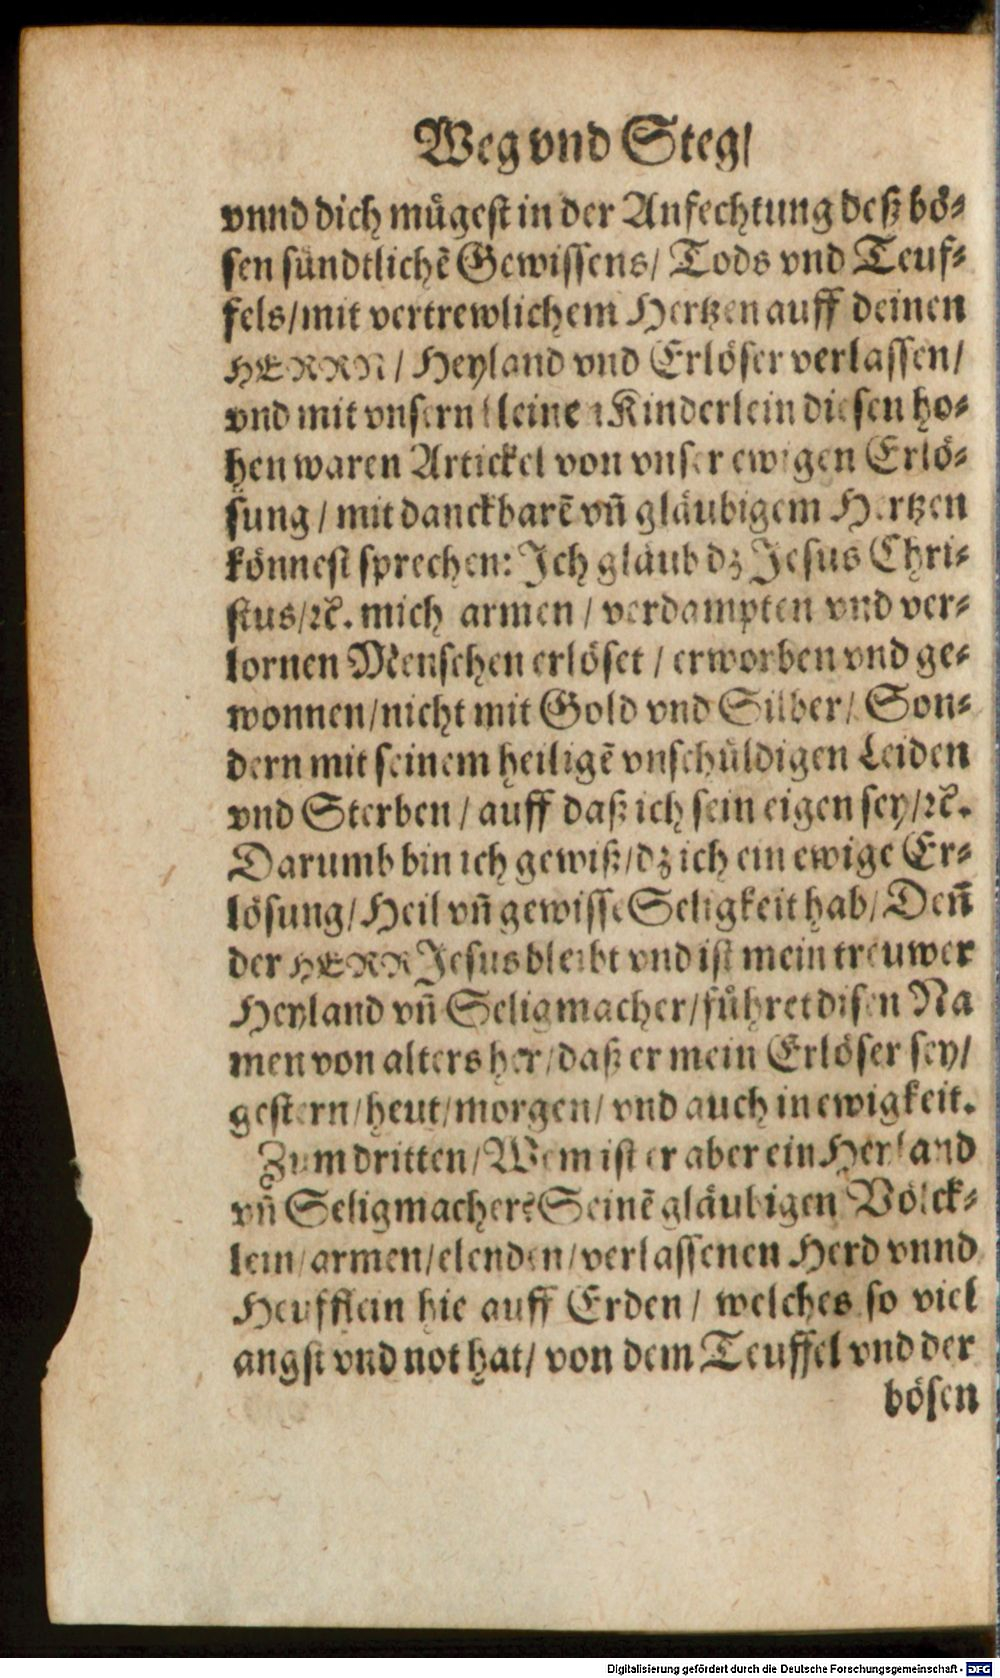 Weg vnd Steg/
vnnd dich mügest in der Anfechtung deß bö-
sen sündtlichē Gewissens/ Tods vnd Teuf-
fels/ mit vertrewlichem Hertzen auff deinen
HERRN/ Heyland vnd Erlöser verlassen/
vnd mit vnsern kleinen Kinderlein diesen ho-
hen waren Artickel von vnser ewigen Erlö-
sung/ mit danckbarē vn̄ gläubigem Hertzen
könnest sprechen: Ich gläub dz Jesus Chri-
stus/ ꝛc. mich armen/ verdampten vnd ver-
lornen Menschen erlöset/ erworben vnd ge-
wonnen/ nicht mit Gold vnd Silber/ Son-
dern mit seinem heiligē vnschüldigen Leiden
vnd Sterben/ auff daß ich sein eigen sey/ ꝛc.
Darumb bin ich gewiß/ dz ich ein ewige Er-
lösung/ Heil vn̄ gewisse Seligkeit hab/ Den̄
der HERR Jesus bleibt vnd ist mein treuwer
Heyland vn̄ Seligmacher/ führet disen Na
men von alters her/ daß er mein Erlöser sey/
gestern/ heut/ morgen/ vnd auch in ewigkeit.
Zum dritten/ Wem ist er aber ein Heyland
vn̄ Seligmacher? Seinē gläubigen Völck-
lein/ armen/ elenden/ verlassenen Herd vnnd
Heufflein hie auff Erden/ welches so viel
angst vnd not hat/ von dem Teuffel vnd der
bösen
Digitalisierung gefördert durch die Deutsche Forschungsgemeinschaft - DFG